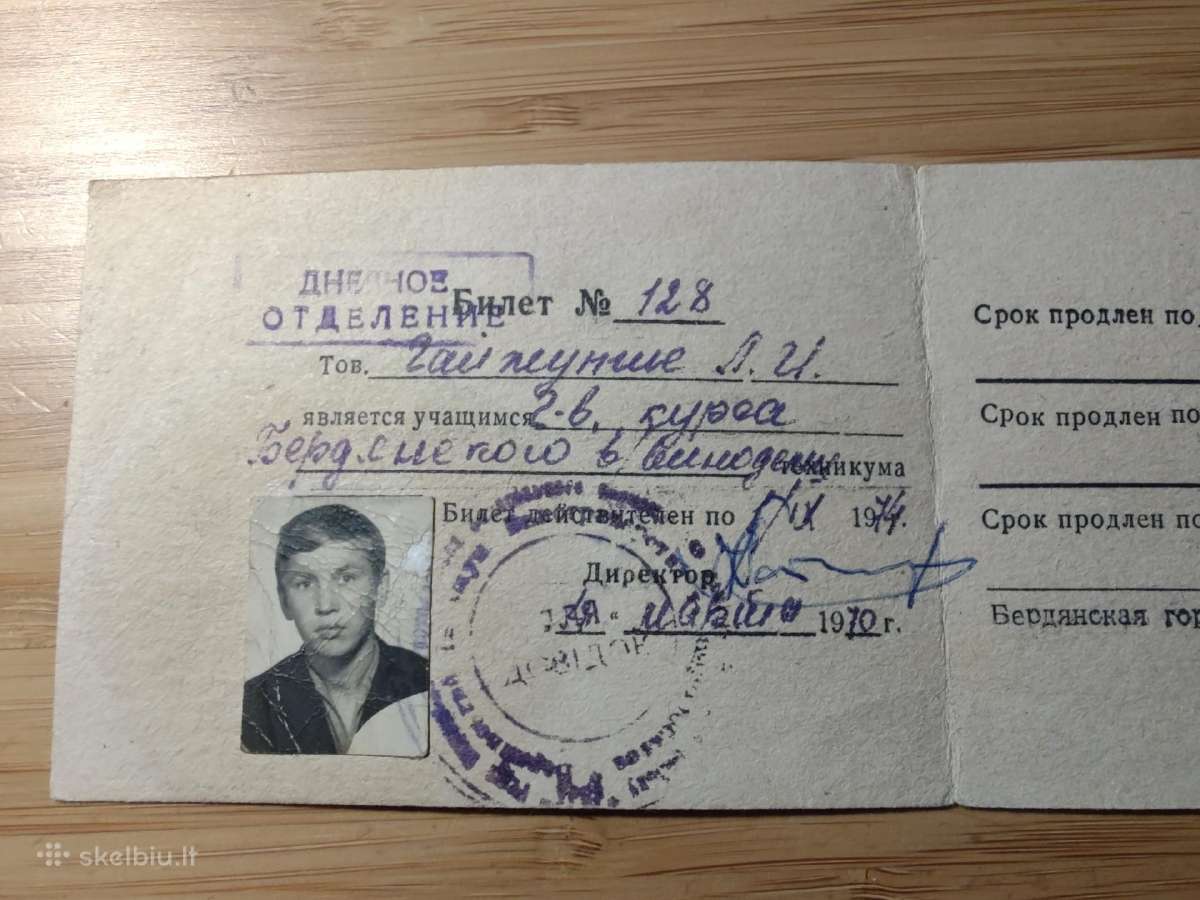 ДНЕВНОЕ
ОТДЕЛЕНИЕ
Билет № 128
Тов. Гайжунис Л. И.
является учащимся 2-в. курса
Бердянского в винодельч техникума
Билет действителен по 1/IX 1974г.
Директор
марта 1970г.
ДОВІДОК
Срок продлен по
Срок продлен по
Срок продлен по
Бердянская гор
skelbiu.lt